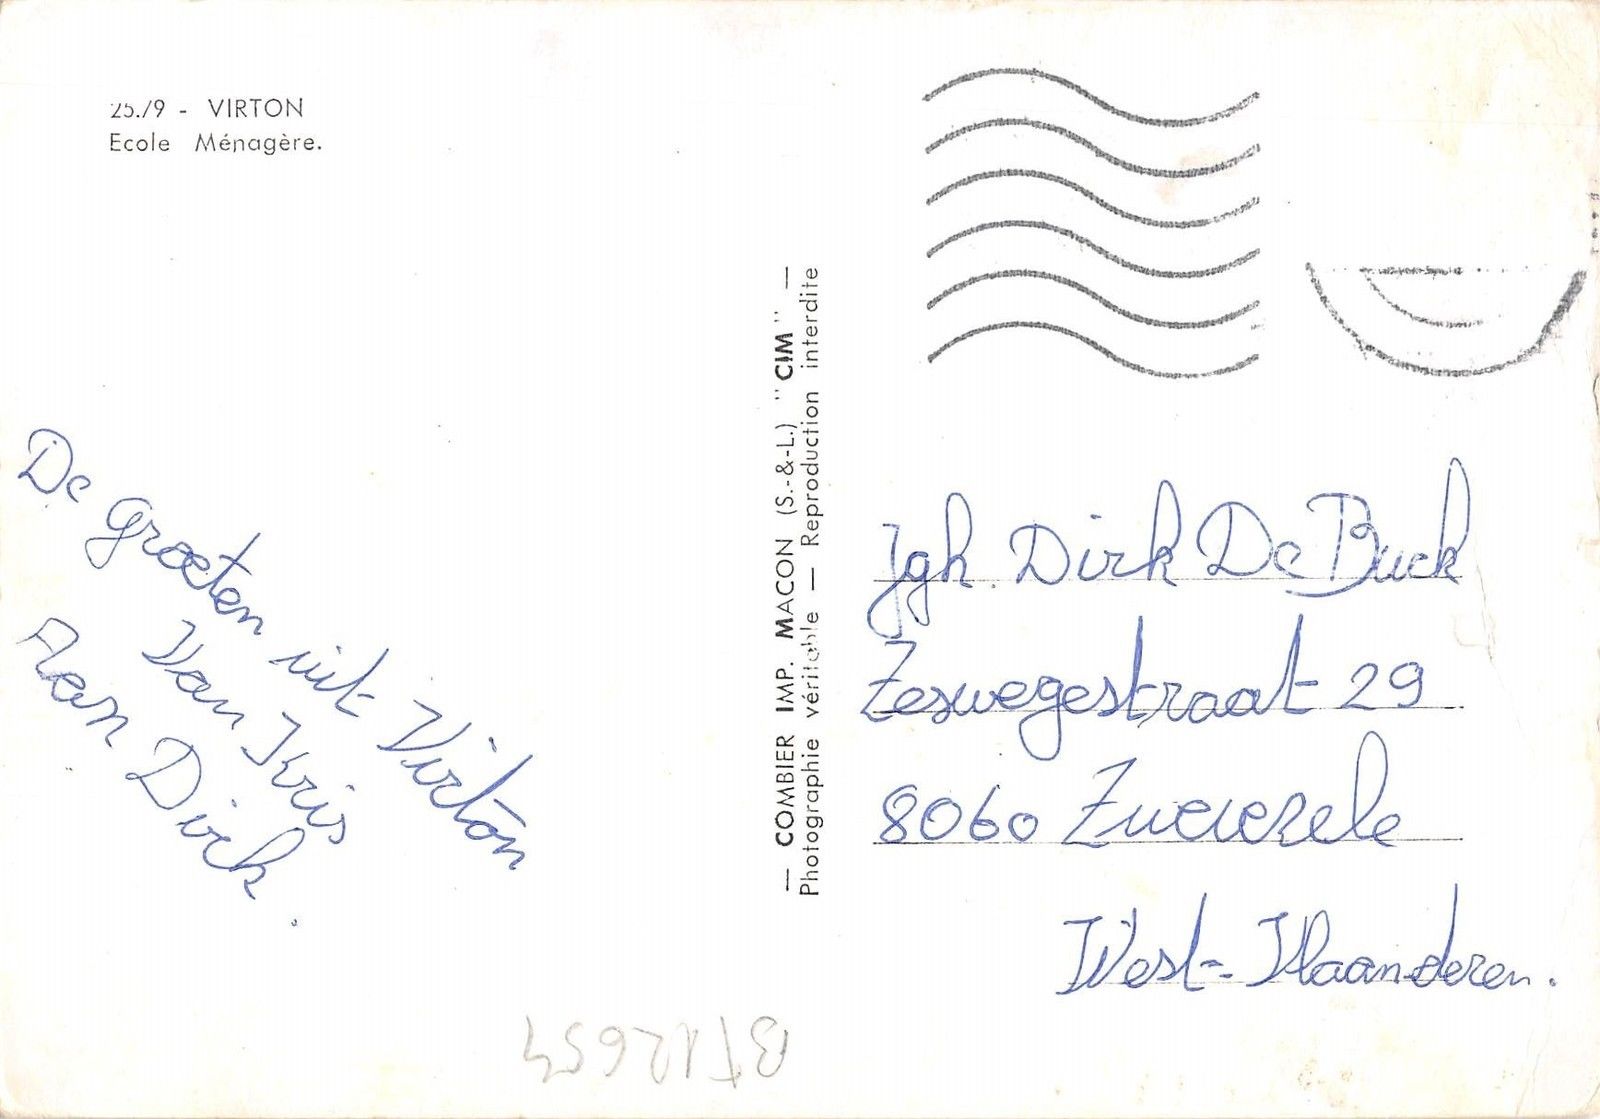 25./9 - VIRTON
Ecole Ménagère.
De Groeten uit Virton
Van Kris
Aan Dirk.
— COMBIER IMP. MACON (S.-&-L.) "CIM" —
Photographie véritable — Reproduction interdite
Jgh. Dirk De Buck
Zeswegestraat 29
8060 Zwevezele
West-Vlaanderen.
BF12654